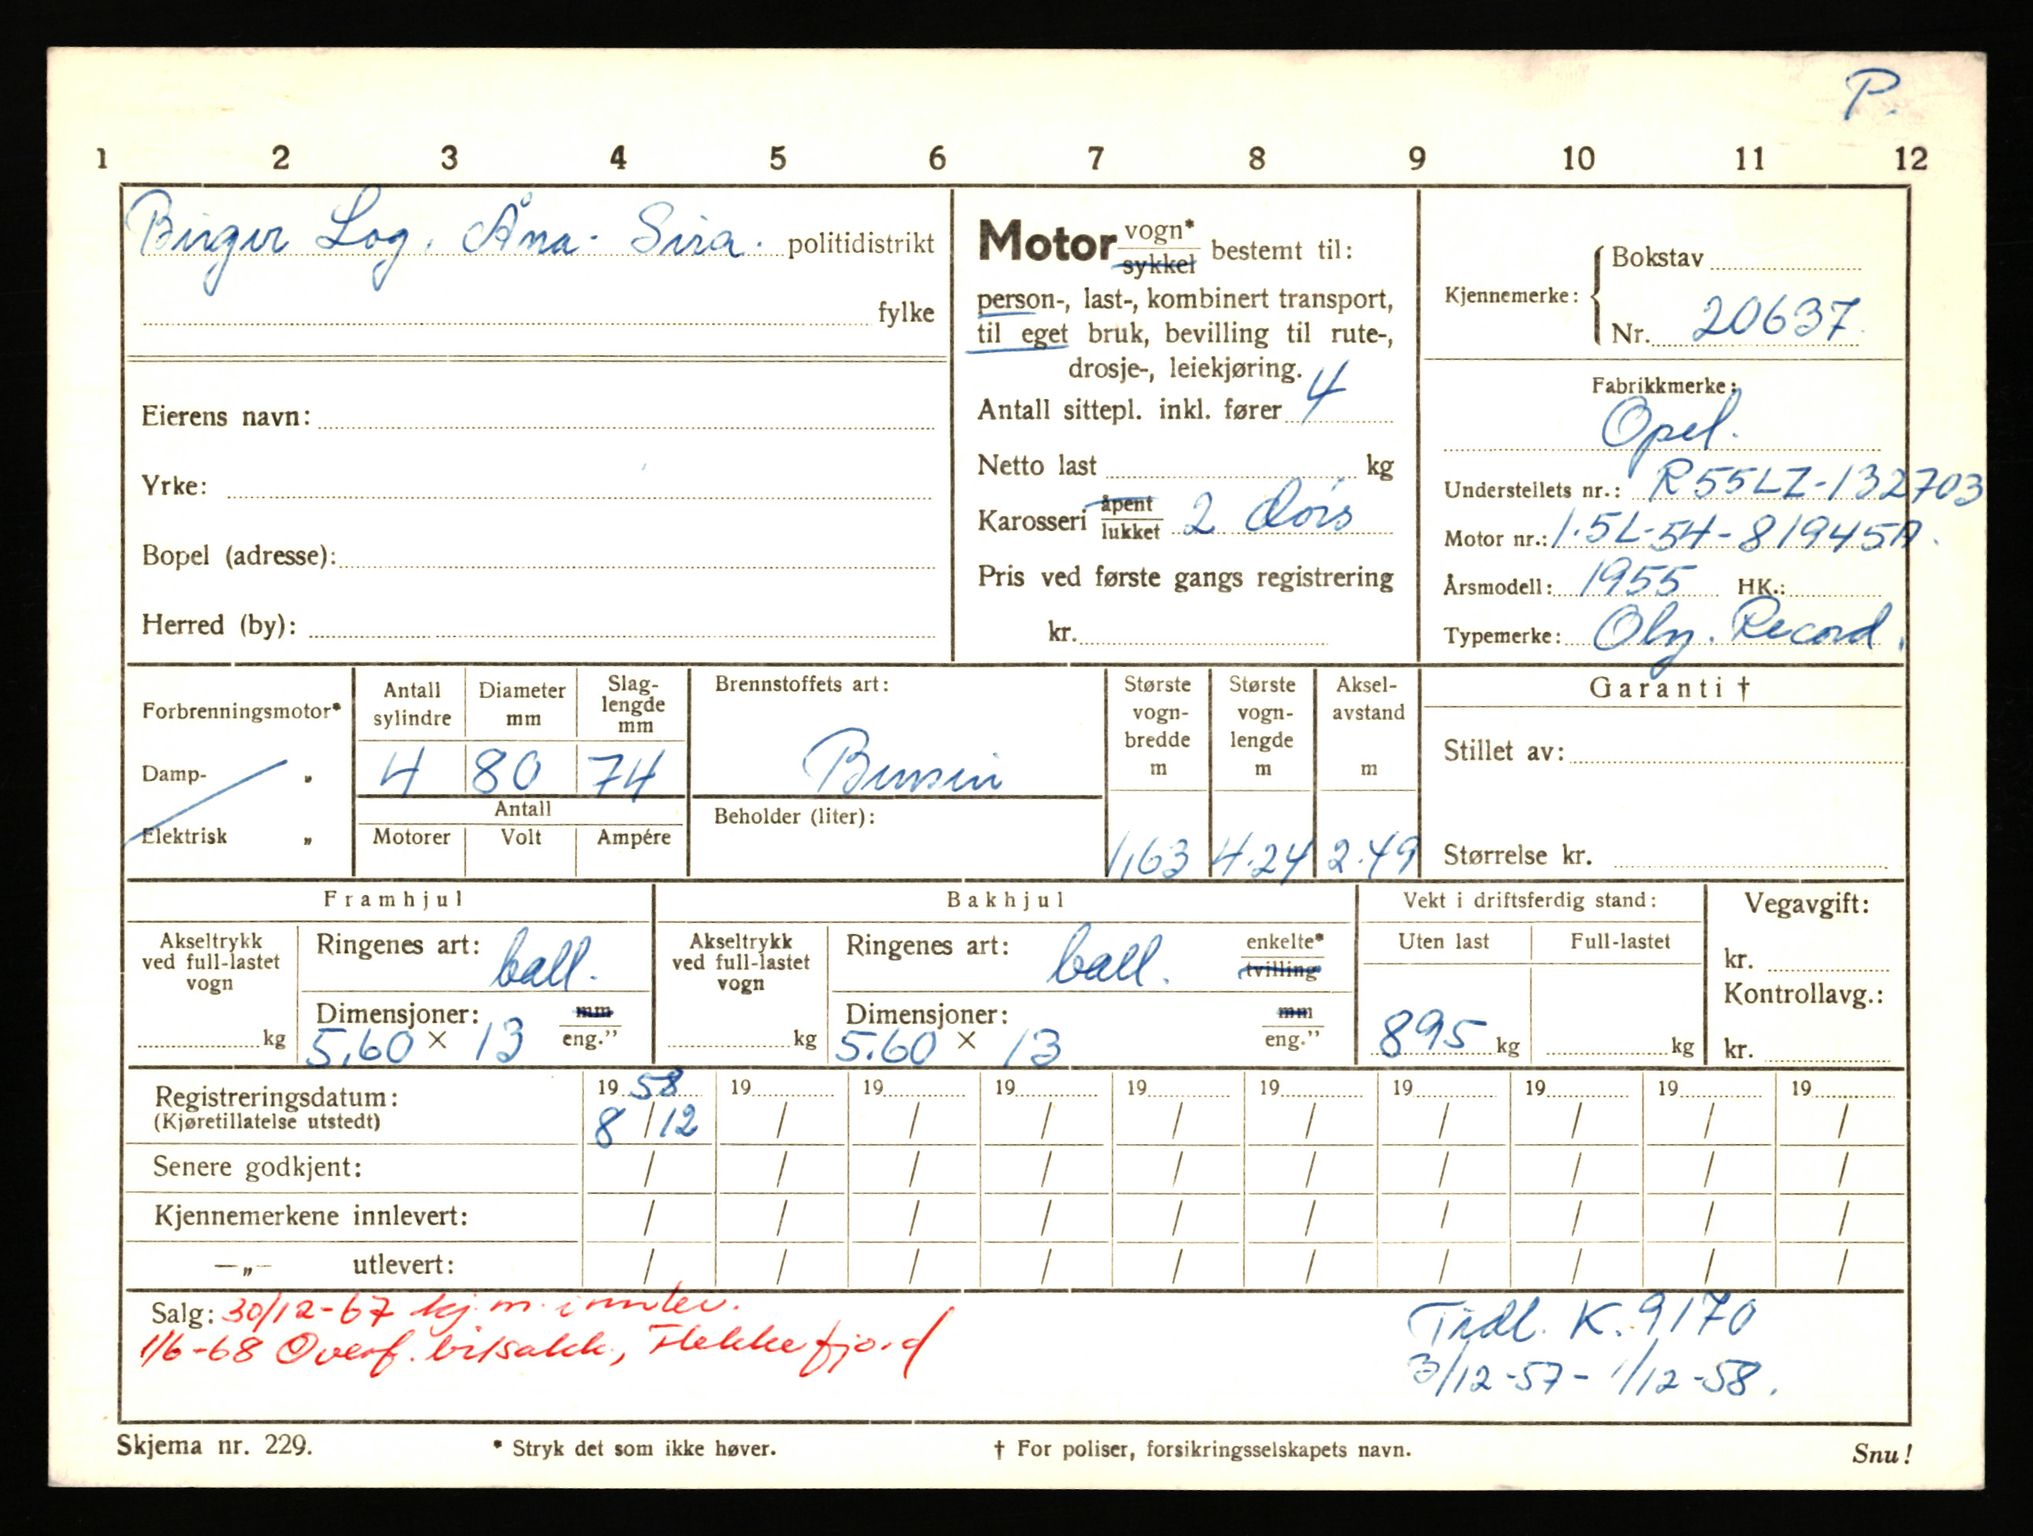 P.
1 2 3 4 5 6 7 8 9 10 11 12
Birger Log. Åna-Sira. politidistrikt
fylke
Eierens navn:
Yrke:
Bopel (adresse):
Herred (by):
Motor vogn* sykkel bestemt til:
person-, last-, kombinert transport,
til eget bruk, bevilling til rute-,
drosje-, leiekjøring.
Antall sittepl. inkl. fører 4
Netto last kg
Karosseri åpent lukket 2 dörs
Pris ved første gangs registrering
kr.
Kjennemerke: Bokstav
Nr. 20637
Fabrikkmerke:
Opel.
Understellets nr.: R55LZ-132703
Motor nr.: 1.5L-54-81945A.
Årsmodell: 1955 HK.:
Typemerke: Oly. Record.
Forbrenningsmotor*
Damp- „
Elektrisk „
Antall sylindre
Diameter mm
Slaglengde mm
4 80 74
Antall
Motorer Volt Ampére
Brennstoffets art:
Bensin
Beholder (liter):
Største vognbredde m
Største vognlengde m
Akselavstand m
1,63 4.24 2.49
Garanti †
Stillet av:
Størrelse kr.
Framhjul
Akseltrykk ved full-lastet vogn
kg
Ringenes art: ball.
Dimensjoner: mm eng.”
5.60 × 13
Bakhjul
Akseltrykk ved full-lastet vogn
kg
Ringenes art: ball. enkelte* tvilling
Dimensjoner: mm eng.”
5.60 × 13
Vekt i driftsferdig stand:
Uten last Full-lastet
895 kg kg
Vegavgift:
kr.
Kontrollavg.:
kr.
Registreringsdatum: 19 58 19 19 19 19 19 19 19 19 19
(Kjøretillatelse utstedt) 8/12 / / / / / / / / /
Senere godkjent: / / / / / / / / / /
Kjennemerkene innlevert: / / / / / / / / / /
—„— utlevert: / / / / / / / / / /
Salg: 30/12-67 kj.m. innlev.
1/6-68 Overf. bilsakk., Flekkefjord
Tidl. K. 9170
3/12-57 - 1/12-58.
Skjema nr. 229. * Stryk det som ikke høver. † For poliser, forsikringsselskapets navn. Snu!